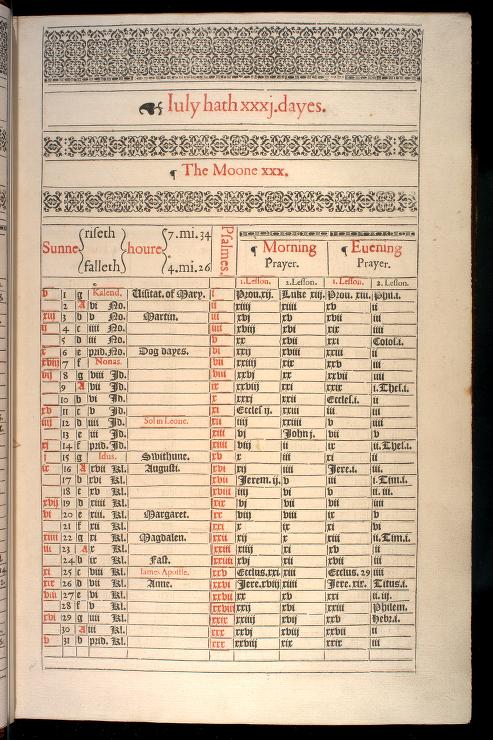 Iuly hath xxxj.dayes.
The Moone xxx.
Sunne riseth falleth houre 7.mi.34 4.mi.26 Psalmes. Morning Prayer. Euening Prayer.
1.Lesson. 2.Lesson. 1.Lesson. 2.Lesson.
1 g Kalend. Uisitat. of Mary. i Prou.xij. Luke xiij. Prou. xiii. Phil.i.
2 A vi No. ii xiiij xiiii xv ii
xiij 3 b v No. Martin. iii xvi xv iii
ij 4 c iiii No. xviij xvi xix iiii
5 d iii No. v xx xvii xxi Colos.i.
x 6 e prid.No. Dog dayes. vi xxij xviii xxiii ii
7 f Nonas. vii xxiiij xix xxv iii
8 g viii Id. viii xxvj xx xxvii iiii
9 A vii Id. ix xxviij xxi xxix i.Thes.i.
10 b vi Id. x xxxj xxii Eccles.i. ii
xv 11 c v Id. xi Eccles ij. xxiii iii iii
12 d iiii Id. Sol in Leone. xii iiij xxiiii v iiii
13 e iii Id. vi John j. vii v
xi 14 f prid. Id. ix ii.Thes.i.
15 g Idus. Swithune. xv x iii xi ii
16 A xvii Kl. Augusti. xvi iiii Jere.i. iii
17 b xvi Kl. xvii Jerem.ij. v iii i.Tim.i.
18 e xv Kl. xviii iiij vi v ii. iii.
19 d xiiii Kl. xix vj vii vii iiii
vi 20 e xiii Kl. Margaret. xx viij viii ix v
21 f xii Kl. xxi x ix xi vi
22 g xi Kl. Magdalen. xxii x xiii ii.Tim.i.
iii 23 A x Kl. xxiii xiiij xi xv ii
24 b ix Kl. Fast. xvj xii iii
xi 25 c viii Kl. Iames Apostle. xxv Ecclus.xxi xiii Ecclus. 29 iiii
xix 26 d vii Kl. Anne. xxvi Jere.xviij xiiii Jere. xix. Titus.i.
27 e vi Kl. xxvii xx xv xxi ii. iij.
28 f v Kl. xxviii xxij xvi xxiii Philem.
xvi 29 g iiii Kl. xxix xxiiij xvii xxv Hebr.i.
30 A iii Kl. xxx xxvj xviii xxvii ii
v 31 b prid. Kl. xxx xxviij xix xxix iii